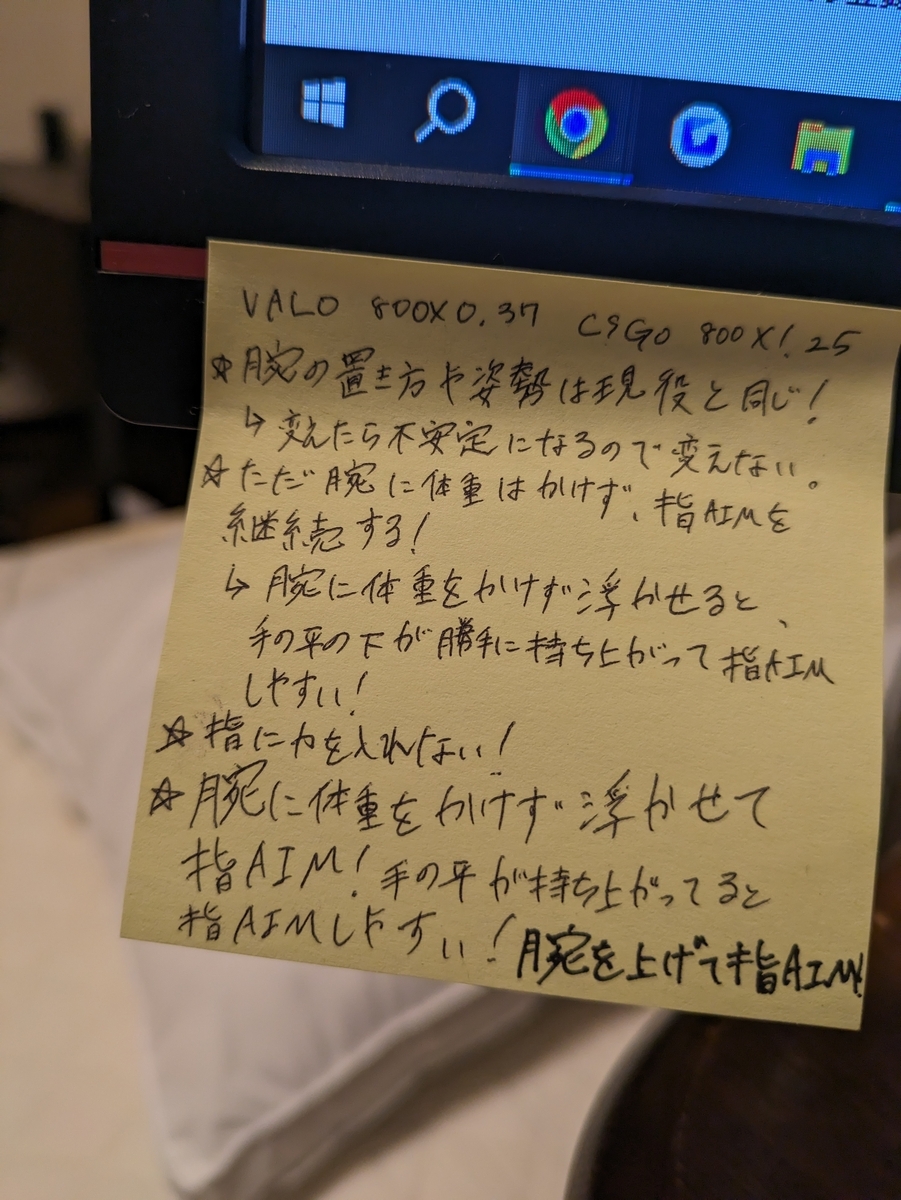 VALO 800X0.37 CSGO 800X1.25
☆腕の置き方や姿勢は現役と同じ!
↳変えたら不安定になるので変えない。
☆ただ腕に体重はかけず、指AIMを
継続する!
↳腕に体重をかけず浮かせると、
手の平の下が勝手に持ち上がって指AIM
しやすい!
☆指に力を入れない!
☆腕に体重をかけず浮かせて
指AIM!手の平が持ち上がってると
指AIMしやすい!腕を上げて指AIM!